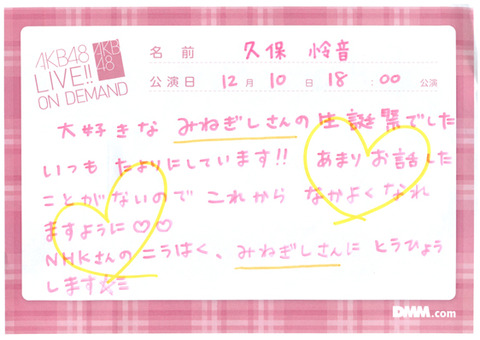 AKB48
LIVE!!
ON DEMAND
AKB
48
名前 久保 怜音
公演日 12月10日 18:00 公演
大好きな みねぎしさんの 生誕祭でした
いつも たよりにしています!! あまり お話した
ことがないので これから なかよくなれ
ますように♡♡
NHKさんの こうはく、みねぎしさんに とうひょう
します☆ミ
DMM.com